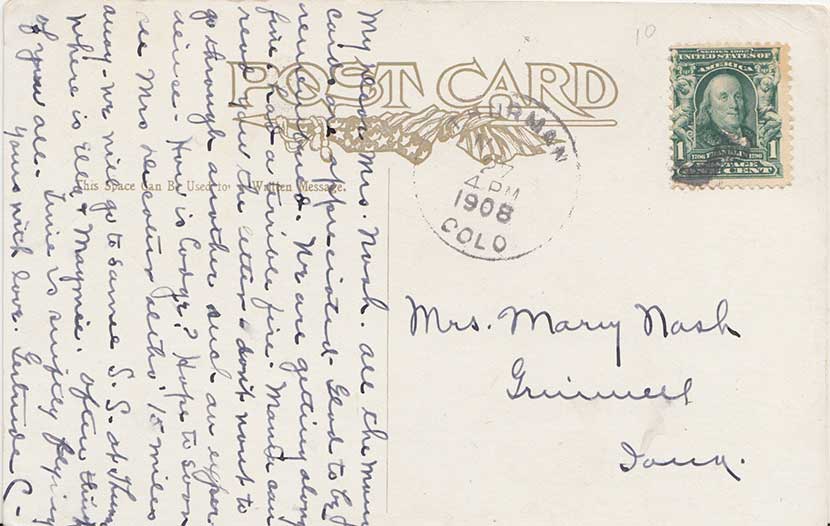 POST CARD
This Space Can Be Used to Written Message.
THURMAN
27
4 PM
1908
COLO
SERIES 1902
UNITED STATES OF
AMERICA
1706 FRANKLIN 1790
1 1
POSTAGE
ONE CENT
10
Mrs. Mary Nash
Grinnell
Iowa.
My dear Mrs. Nash. All the many
cards are appreciated. Glad to be
remembered. We are getting along
fine. Had a terrible fire. Maud can
read you the letter - don't want to
go through another such an exper
ience. How is Cody? Hope to soon
see Mrs. 15 miles
away. We will go to same S.S. at Thur
Where is Ella & Maymie. Often think
of you all. Time is swiftly flying
yours with love. Gertrude C-